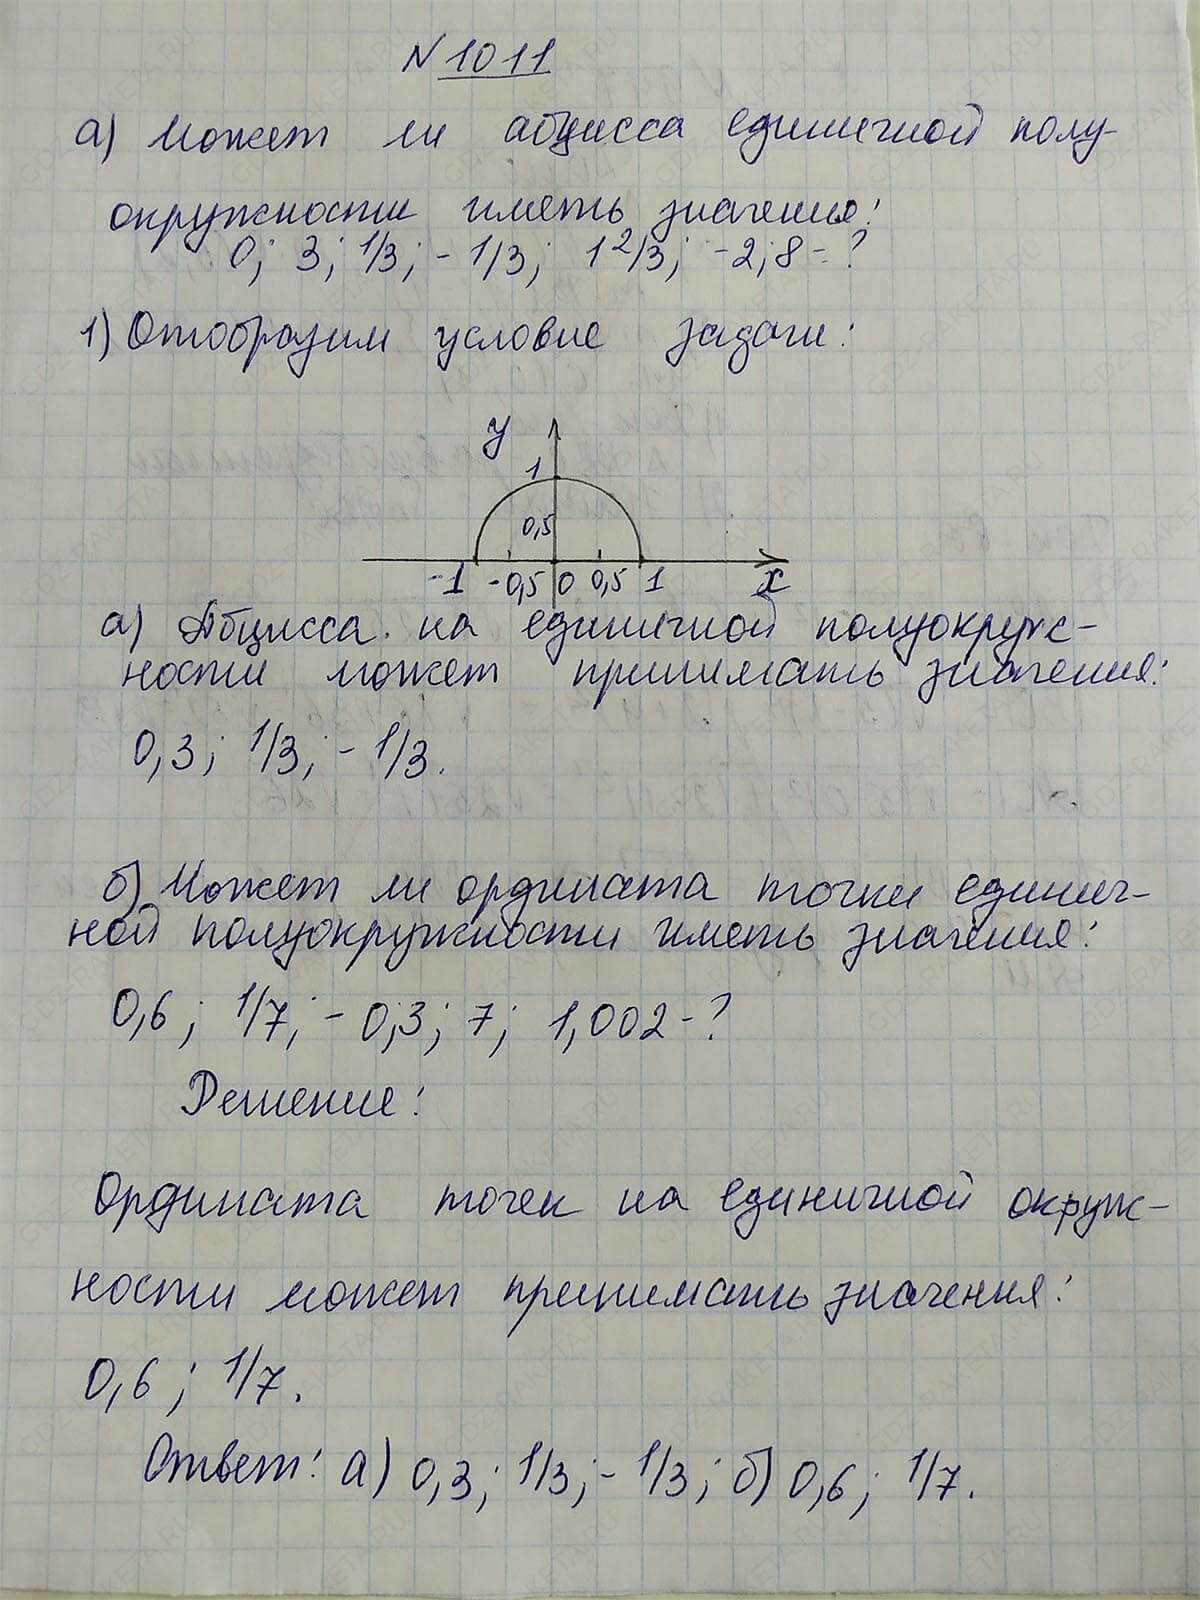 N 1011
а) Может ли абцисса единичной полу-
окружности иметь значения:
0; 3; 1/3; - 1/3; 1 2/3; -2; 8 - ?
1) Отобразим условие задачи:
y
1
0,5
-1 -0,5 0 0,5 1 x
а) Абцисса на единичной полуокруж-
ности может принимать значения:
0,3; 1/3; - 1/3.
б) Может ли ордината точки единич-
ной полуокружности иметь значения:
0,6; 1/7; - 0,3; 7; 1,002 - ?
Решение:
Ордината точек на единичной окруж-
ности может принимать значения:
0,6; 1/7.
Ответ: а) 0,3; 1/3; - 1/3; б) 0,6; 1/7.